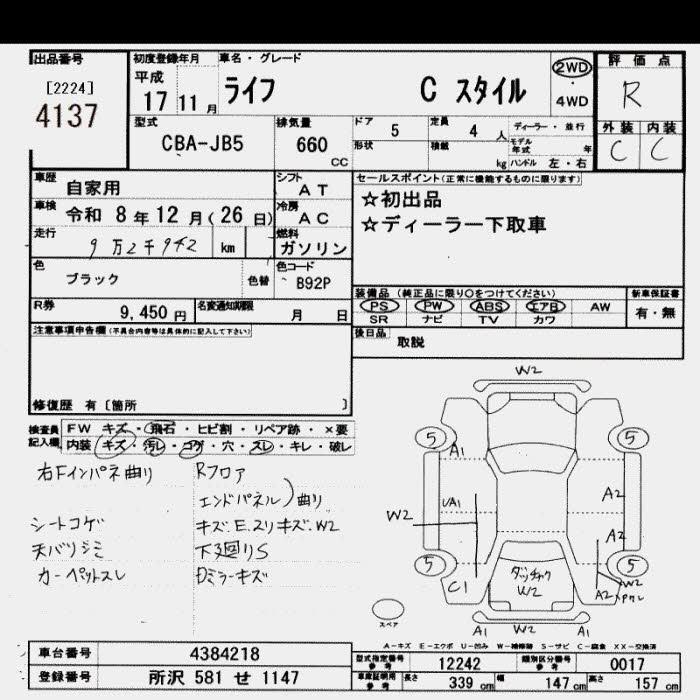 出品番号
[2224]
4137
初度登録年月 車名・グレード
平成
17 11月 ライフ C スタイル
2WD
・
4WD
評価点
R
外装 内装
C C
型式
CBA-JB5
排気量
660
CC
ドア 5 定員 4人 ディーラー・並行
形状 積載 kg モデル年式 年
ハンドル 左・右
車歴 自家用
シフト AT
車検 令和 8年 12月(26日)
冷房 AC
走行 9万2千942 km
燃料 ガソリン
色 ブラック 色替
色コード B92P
R券 9,450円 名変通知期限 月 日
セールスポイント(正常に機能するものに限ります)
☆初出品
☆ディーラー下取車
装備品 (純正品に限り○をつけてください) 新車保証書
PS PW ABS エアB AW 有・無
SR ナビ TV カワ
後日品 取説
注意事項申告欄(不具合内容等は具体的に記入して下さい)
修復歴 有 〔箇所 〕
検査員記入欄
FW キズ・飛石・ヒビ割・リペア跡・×要
内装 キズ・汚レ・コゲ・穴・スレ・キレ・破レ
右Fインパネ曲り
シートコゲ
天バリジミ
カーペットスレ
Rフロア
エンドパネル)曲り
キズ.E.スリキズ.W2
下廻りS
Dミラーキズ
W2
5 5
A1
UA1 A2
W2
A2
5 5
C1
ダッチャク
W2
A2 W2
A1 W2 A1
スペア
A-キズ E-エクボ U-凹み W-補修跡 S-サビ C-腐食 XX-交換済
車台番号 4384218
登録番号 所沢 581 せ 1147
型式指定番号 参考 12242 類別区分番号 参考 0017
車庫証明用 参考 長さ 339 cm 幅 147 cm 高さ 157 cm